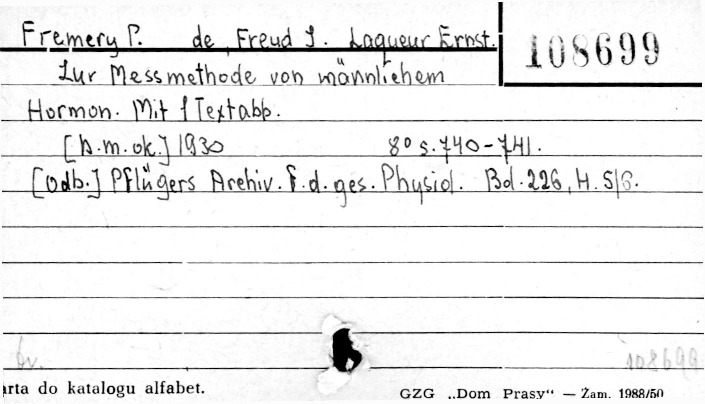 Fremery P. de, Freud J. Laqueur Ernst.
108699
Zur Messmethode von männlichem
Hormon. Mit 1 Textabb.
[b.m.ok.] 1930 8° s. 740-741.
[odb.] Pflügers Archiv. f. d. ges. Physiol. Bd. 226, H. 5/6.
br. 108699
arta do katalogu alfabet.
GZG „Dom Prasy" — Zam. 1988/50